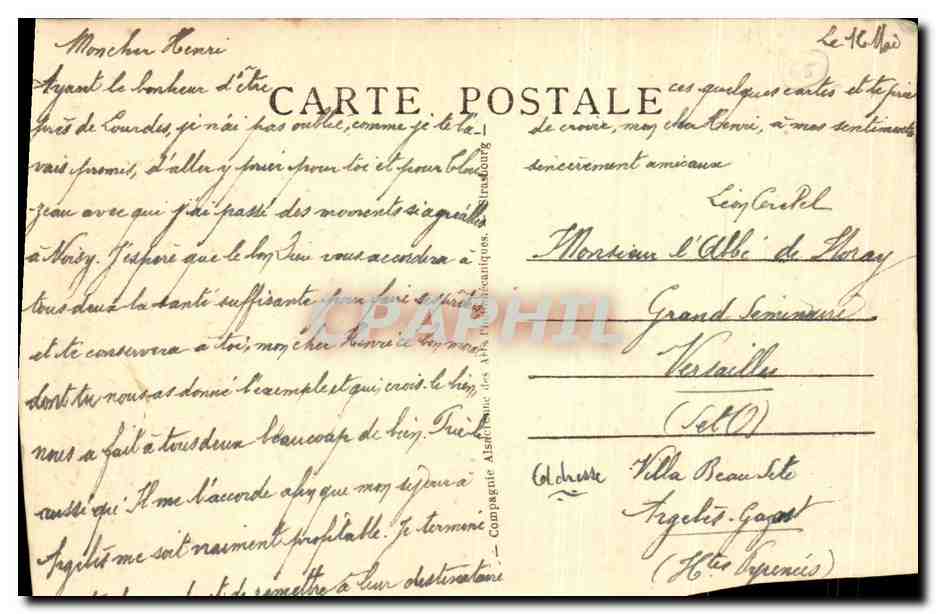 Le 16 Mai
Mon cher Henri
Ayant le bonheur d'être
CARTE POSTALE
près de Lourdes, je n'ai pas oublié, comme je te l'a-
vais promis, d'aller y prier pour toi et pour
-zeau avec qui j'ai passé des moments si agréables
à Noisy. J'espère que le bon Dieu vous accordera à
tous deux la santé suffisante pour
et te conservera à toi, mon cher Henri ce bon
dont tu nous as donné l'exemple et qui, crois-le bien,
nous a fait à tous deux beaucoup de bien. Prie-le
aussi qu'Il me l'accorde afin que mon séjour à
Argelès me soit vraiment profitable. Je termine
de remettre à leur destinataire
ces quelques cartes et te prie
de croire, mon cher Henri, à mes sentiments
sincèrement amicaux
Léon
Monsieur l'Abbé de
Grand Séminaire
Versailles
(S et O)
Adresse
Villa Beau Site
Argelès-Gazost
(Htes Pyrénées)
— Compagnie Alsacienne des Arts Photomécaniques, Strasbourg —
CPAPHIL